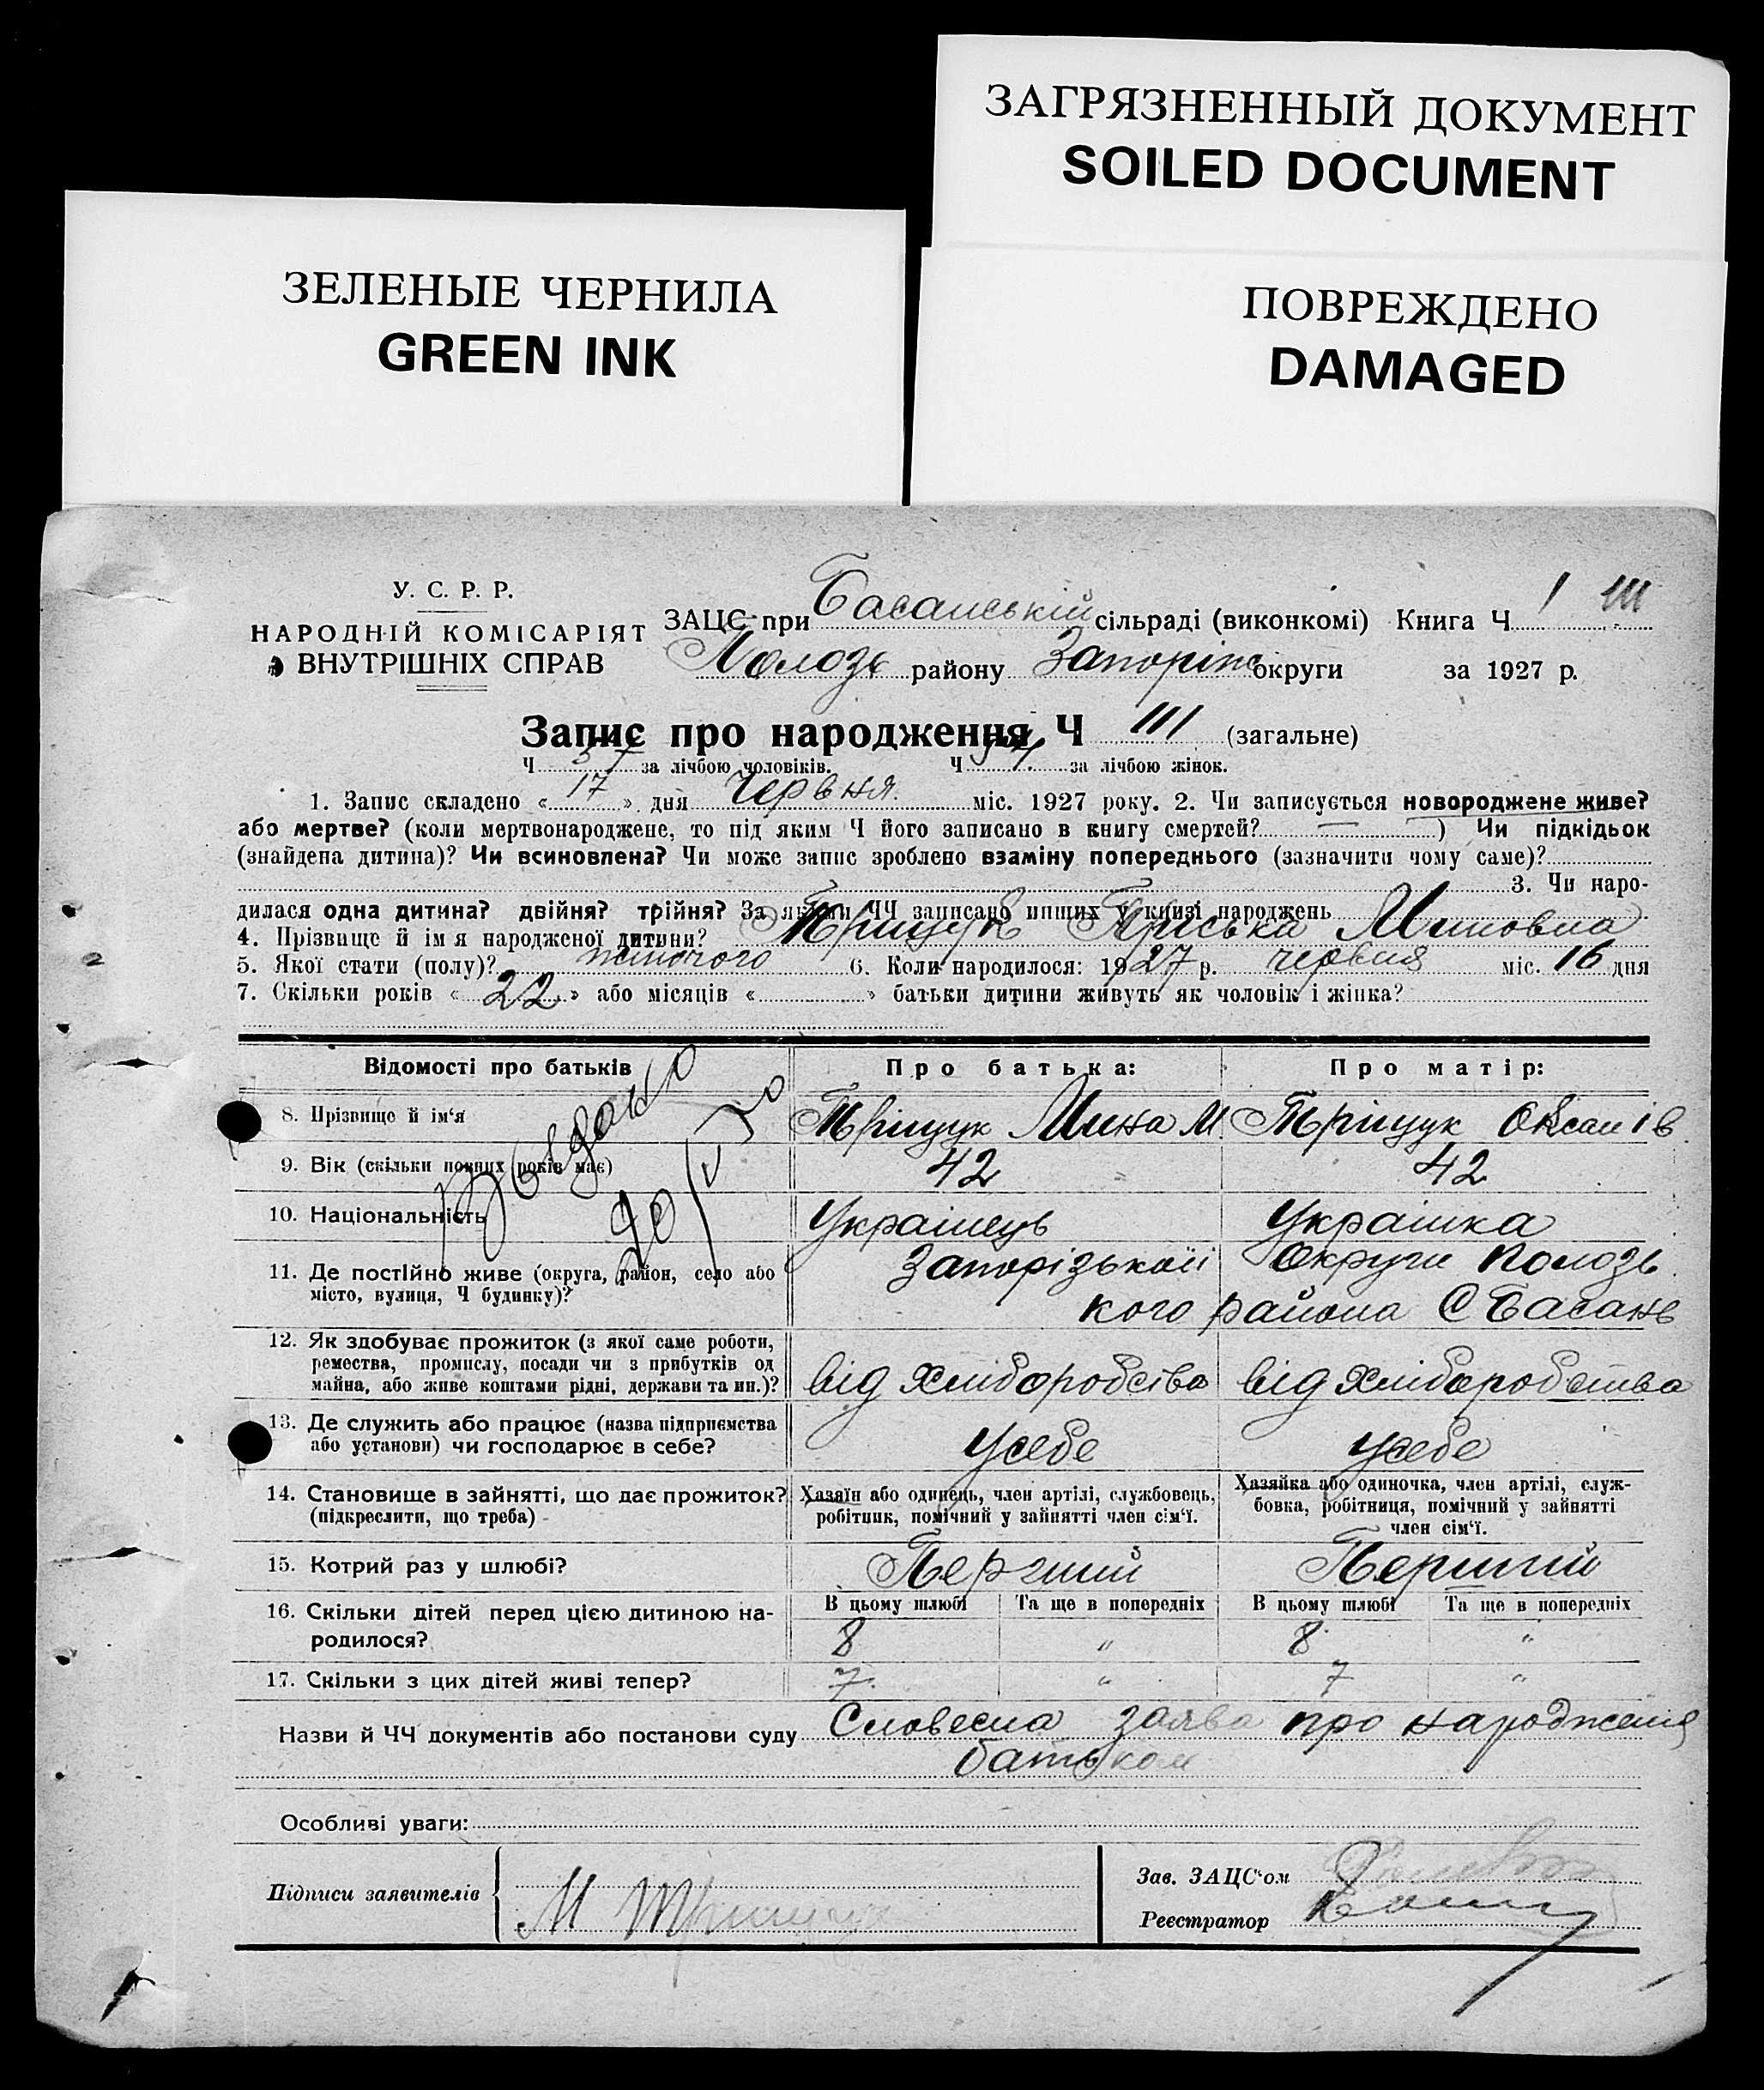 ЗАГРЯЗНЕННЫЙ ДОКУМЕНТ
SOILED DOCUMENT
ЗЕЛЕНЫЕ ЧЕРНИЛА
GREEN INK
ПОВРЕЖДЕНО
DAMAGED
У. С. Р. Р.
НАРОДНІЙ КОМІСАРІЯТ
ВНУТРІШНІХ СПРАВ
ЗАЦС при Басанській сільраді (виконкомі) Книга Ч 1 111
Полозь району Запоріж округи за 1927 р.
Запис про народження Ч 111 (загальне)
Ч 57 за лічбою чоловіків. Ч 54 за лічбою жінок.
1. Запис складено « 17 » дня Червня міс. 1927 року. 2. Чи записується новороджене живе?
або мертве? (коли мертвонароджене, то під яким Ч його записано в книгу смертей? — ) Чи підкідьок
(знайдена дитина)? Чи всиновлена? Чи може запис зроблено взаміну попереднього (зазначити чому саме)?
3. Чи наро-
дилася одна дитина? двійня? трійня? За якими ЧЧ записано инших у книзі народжень
4. Прізвище й ім я народженої дитини? Тріщук Пріська Миновна
5. Якої стати (полу)? жіночого 6. Коли народилося: 1927 р. червня міс. 16 дня
7. Скільки років « 22 » або місяців « » батьки дитини живуть як чоловік і жінка?
Відомості про батьків Про батька: Про матір:
8. Прізвище й ім'я Тріщук Мина М. Тріщук Оксан ів
9. Вік (скільки повних років має) 42 42
10. Національність Українець Українка
11. Де постійно живе (округа, район, село або Запорізькоїі Округи Полозь
місто, вулиця, Ч будинку)? кого района С Басань
12. Як здобуває прожиток (з якої саме роботи,
ремества, промислу, посади чи з прибутків од
майна, або живе коштами рідні, держави та ин.)? від хліборобства від хліборобства
13. Де служить або працює (назва підприємства
або установи) чи господарює в себе? усебе усебе
14. Становище в зайнятті, що дає прожиток? Хазяїн або одинець, член артілі, службовець, Хазяйка або одиночка, член артілі, служ-
(підкреслити, що треба) робітник, помічний у зайнятті член сім'ї. бовка, робітниця, помічний у зайнятті
член сім'ї.
15. Котрий раз у шлюбі? Перший Перший
16. Скільки дітей перед цією дитиною на- В цьому шлюбі Та ще в попередніх В цьому шлюбі Та ще в попередніх
родилося? 8 " 8 "
17. Скільки з цих дітей живі тепер? 7 " 7 "
Назви й ЧЧ документів або постанови суду Словесна заява про народженія
батьком
Особливі уваги:
Підписи заявителів М Тріщук
Зав. ЗАЦС'ом
Реєстратор